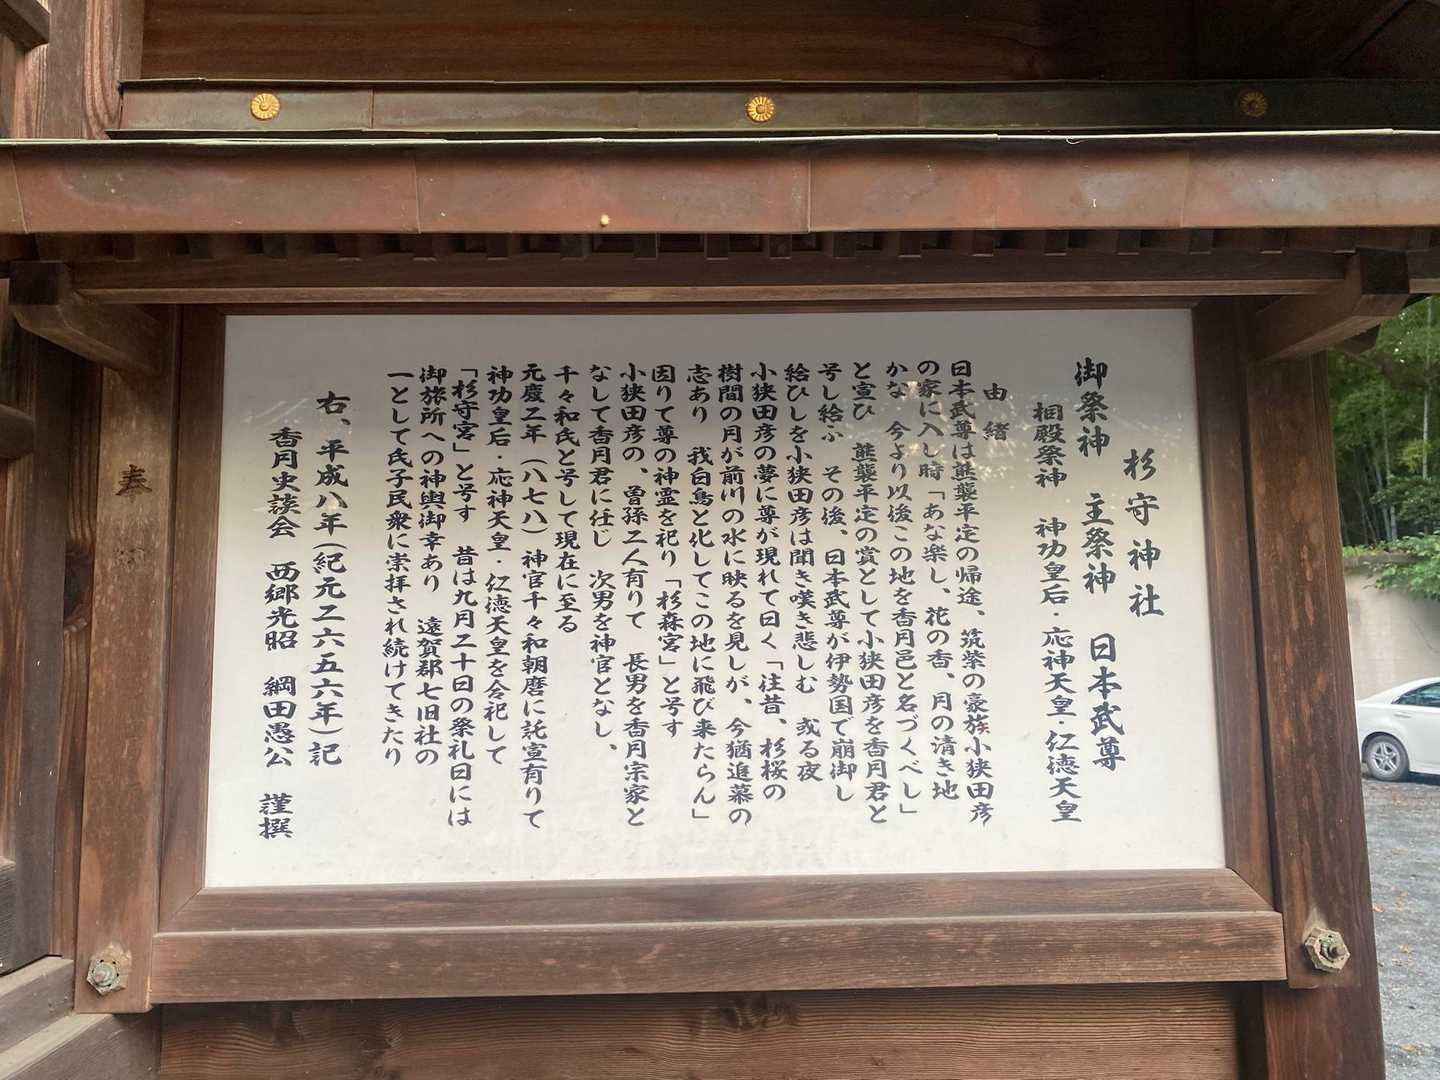 杉守神社
御祭神 主祭神 日本武尊
相殿祭神 神功皇后・応神天皇・仁徳天皇
由緒
日本武尊は熊襲平定の帰途、筑紫の豪族小狭田彦
の家に入し時「あな楽し、花の香、月の清き地
かな 今より以後この地を香月邑と名づくべし」
と宣ひ 熊襲平定の賞として小狭田彦を香月君と
号し給ふ その後、日本武尊が伊勢国で崩御し
給ひしを小狭田彦は聞き嘆き悲しむ 或る夜
小狭田彦の夢に尊が現れて曰く「往昔、杉桜の
樹間の月が前川の水に映るを見しが、今猶追慕の
志あり 我白鳥と化してこの地に飛び来たらん」
因りて尊の神霊を祀り「杉森宮」と号す
小狭田彦の、曽孫二人有りて 長男を香月宗家と
なして香月君に任じ 次男を神官となし、
千々和氏と号して現在に至る
元慶二年(八七八)神官千々和朝麿に託宣有りて
神功皇后・応神天皇・仁徳天皇を合祀して
「杉守宮」と号す 昔は九月二十日の祭礼日には
御旅所への神輿御幸あり 遠賀郡七旧社の
一として氏子民衆に崇拝され続けてきたり
右、平成八年(紀元二六五六年)記
香月史談会 西郷光昭 綱田愚公 謹撰
奉